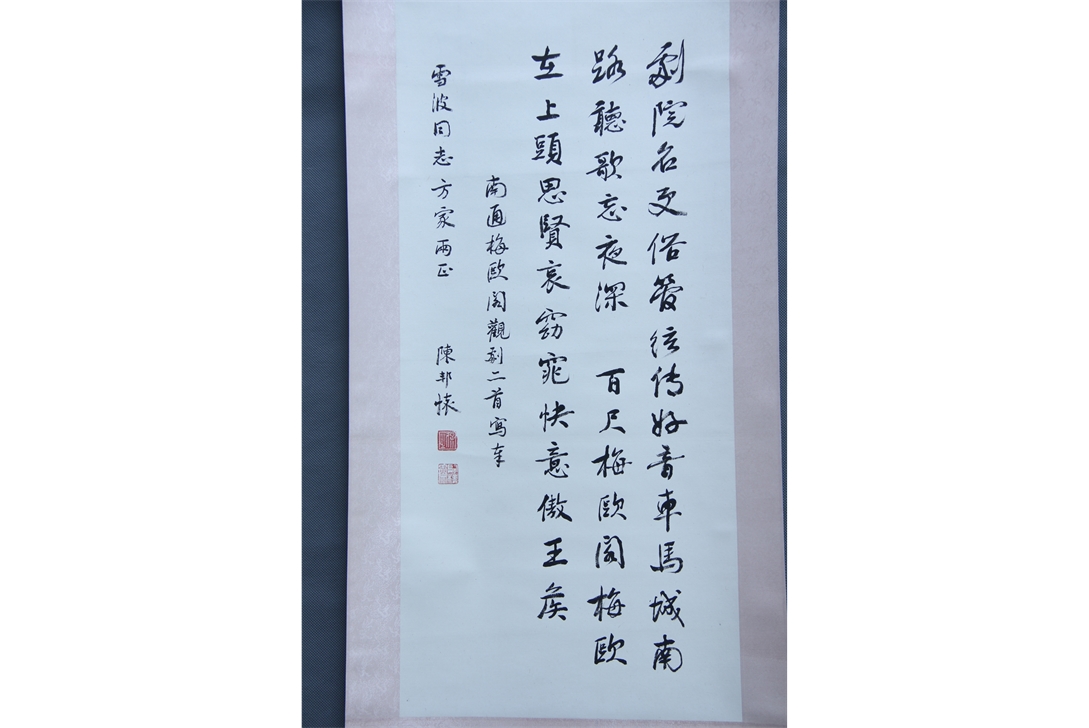 劇院名更俗管弦傳好音車馬城南
路聽歌忘夜深 百尺梅歐閣梅歐
在上頭思賢哀窈窕快意傲王侯
南通梅歐閣觀劇二首寫奉
雪波同志方家兩正 陳邦懷